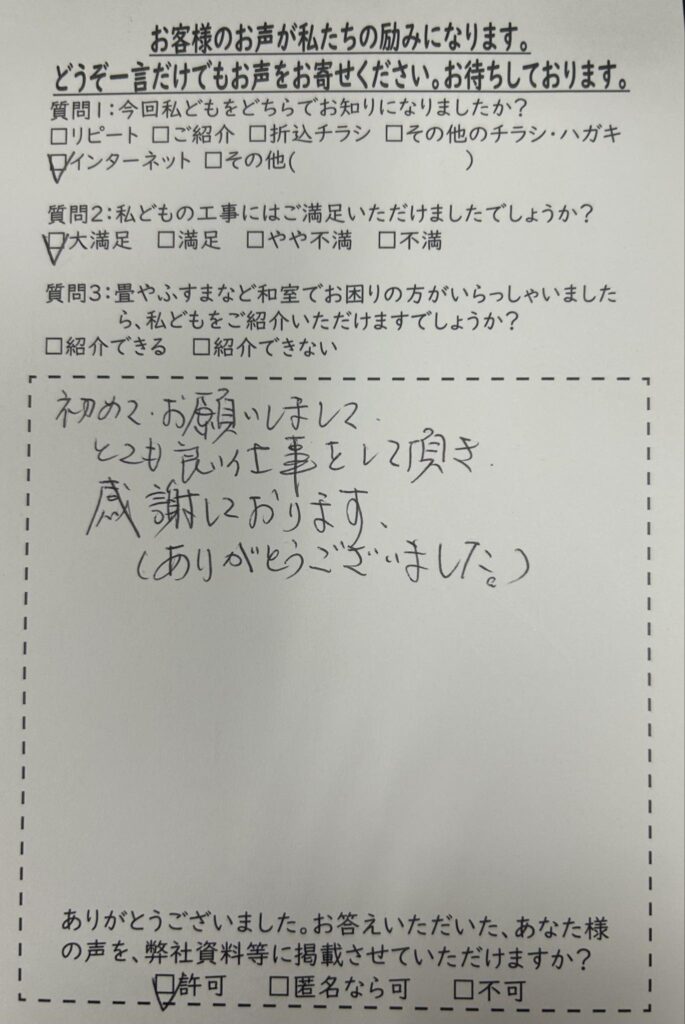 お客様のお声が私たちの励みになります。
どうぞ一言だけでもお声をお寄せください。お待ちしております。
質問1:今回私どもをどちらでお知りになりましたか?
□リピート □ご紹介 □折込チラシ □その他のチラシ・ハガキ
☑インターネット □その他( )
質問2:私どもの工事にはご満足いただけましたでしょうか?
☑大満足 □満足 □やや不満 □不満
質問3:畳やふすまなど和室でお困りの方がいらっしゃいました
ら、私どもをご紹介いただけますでしょうか?
□紹介できる □紹介できない
初めて、お願いしまして、
とても良い仕事をして頂き、
感謝しております、
(ありがとうございました。)
ありがとうございました。お答えいただいた、あなた様
の声を、弊社資料等に掲載させていただけますか?
☑許可 □匿名なら可 □不可